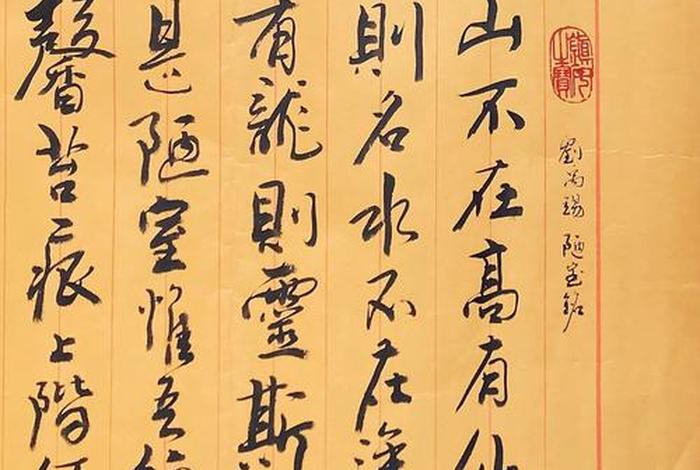 劉禹錫 陋室銘
山不在高有仙
則名水不在深
有龍則靈斯
是陋室惟吾
馨苔痕上階